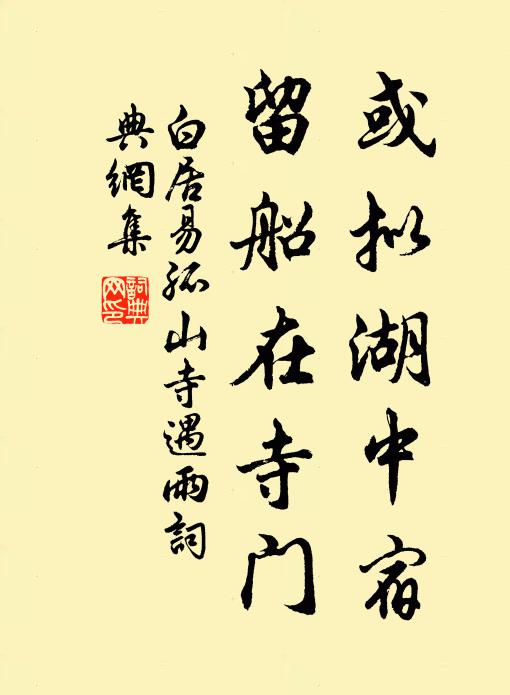 或拟湖中宿
留船在寺门
白居易孤山寺遇雨詞
典網集
詞典
网印